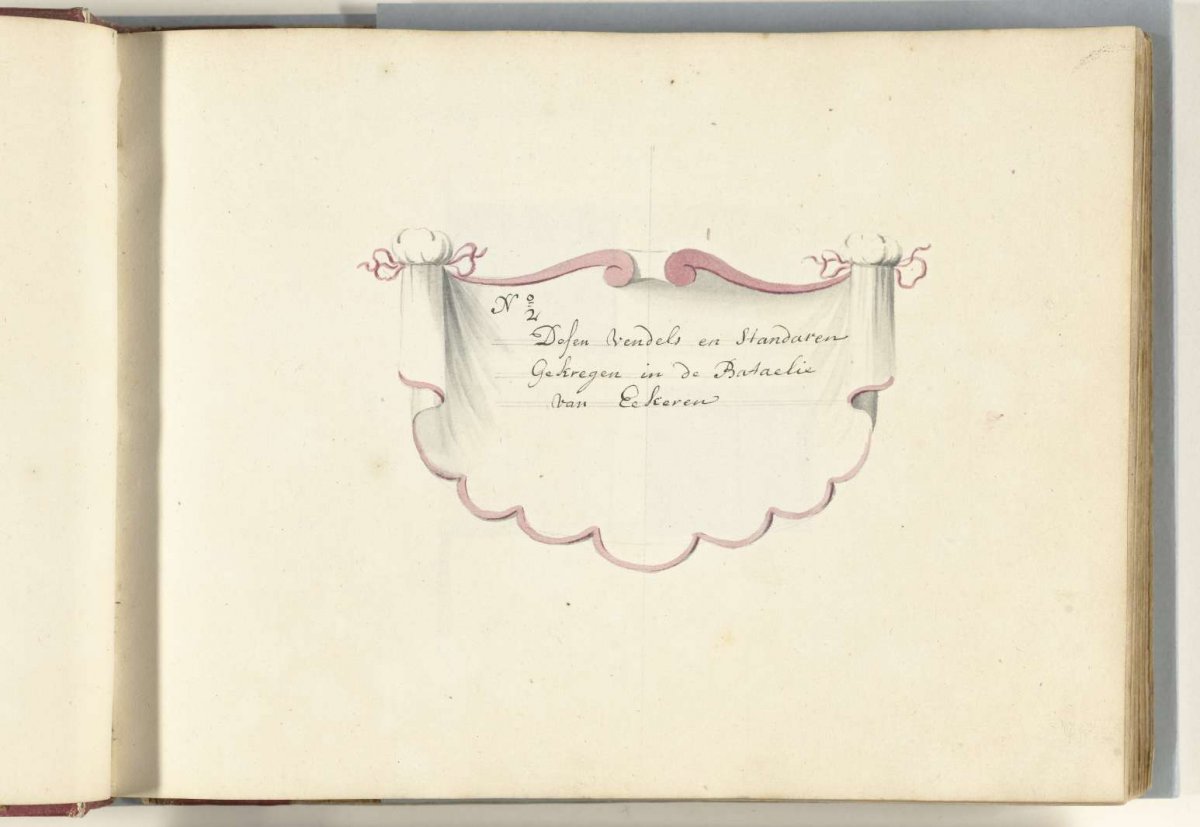 No 2
Desen Vendels en Standaren
Gekregen in de Bataelie
van Eekeren